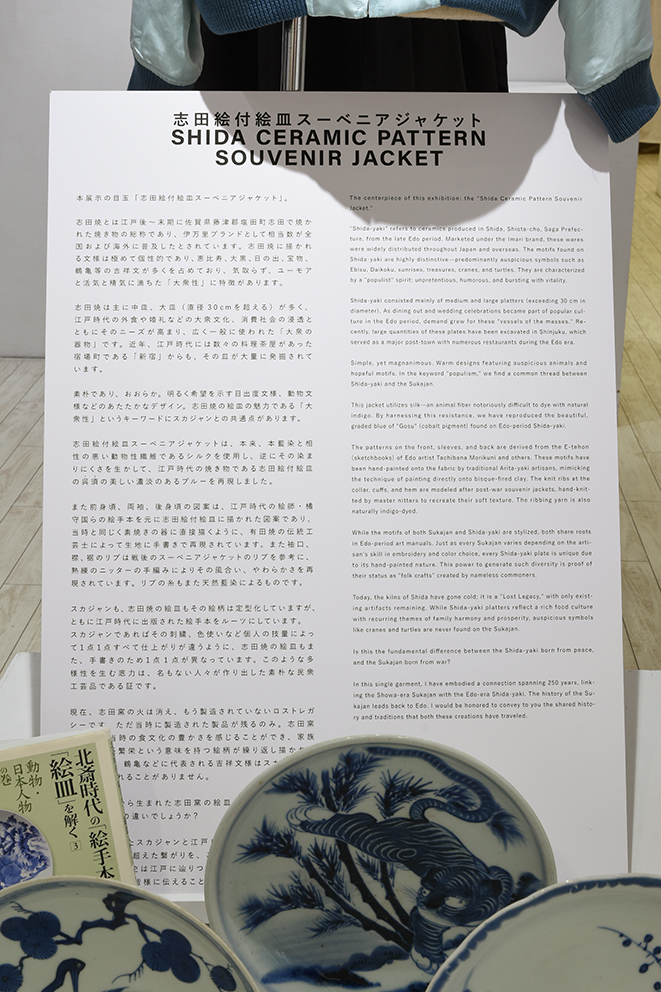 志田絵付絵皿スーベニアジャケット
SHIDA CERAMIC PATTERN
SOUVENIR JACKET
本展示の目玉「志田絵付絵皿スーベニアジャケット」。
志田焼とは江戸後〜末期に佐賀県藤津郡塩田町志田で焼か
れた焼き物の総称であり、伊万里ブランドとして相当数が全
国および海外に普及したとされています。志田焼に描かれ
る文様は極めて個性的であり、恵比寿、大黒、日の出、宝物、
鶴亀等の吉祥文が多くを占めており、気取らず、ユーモア
と活気と精気に満ちた「大衆性」に特徴があります。
志田焼は主に中皿、大皿（直径30cmを超える）が多く、
江戸時代の外食や婚礼などの大衆文化、消費社会の浸透と
ともにそのニーズが高まり、広く一般に使われた「大衆の
器物」です。近年、江戸時代には数々の料理茶屋があった
宿場町である「新宿」からも、その皿が大量に発掘されて
います。
素朴であり、おおらか。明るく希望を示す目出度文様、動物文
様などのあたたかなデザイン。志田焼の絵皿の魅力である「大
衆性」というキーワードにスカジャンとの共通点があります。
志田絵付絵皿スーベニアジャケットは、本来、本藍染と相
性の悪い動物性繊維であるシルクを使用し、逆にその染ま
りにくさを生かして、江戸時代の焼き物である志田絵付絵皿
の呉須の美しい濃淡のあるブルーを再現しました。
また前身頃、両袖、後身頃の図案は、江戸時代の絵師・橘
守国らの絵手本を元に志田絵付絵皿に描かれた図案であり、
当時と同じく素焼きの器に直接描くように、有田焼の伝統工
芸士によって生地に手書きで再現されています。また袖口、
襟、裾のリブは戦後のスーベニアジャケットのリブを参考に、
熟練のニッターの手編みによりその風合い、やわらかさを再
現されています。リブの糸もまた天然藍染によるものです。
スカジャンも、志田焼の絵皿もその絵柄は定型化していますが、
ともに江戸時代に出版された絵手本をルーツにしています。
スカジャンであればその刺繍、色使いなど個人の技量によっ
て1点1点すべて仕上がりが違うように、志田焼の絵皿もま
た、手書きのため1点1点が異なっています。このような多
様性を生む底力は、名もない人々が作り出した素朴な民衆
工芸品である証です。
現在、志田窯の火は消え、もう製造されていないロストレガ
シーです。ただ当時に製造された製品が残るのみ。志田窯
当時の食文化の豊かさを感じることができ、家族
繁栄という意味を持つ絵柄が繰り返し描か
鶴亀などに代表される吉祥文様はス
れることがありません。
から生まれた志田窯の絵皿
違いでしょうか？
たスカジャンと江戸
超えた繋がりを、
は江戸に辿りつ
皆様に伝えること
The centerpiece of this exhibition: the "Shida Ceramic Pattern Souvenir
Jacket."
"Shida-yaki" refers to ceramics produced in Shida, Shiota-cho, Saga Prefec-
ture, from the late Edo period. Marketed under the Imari brand, these wares
were widely distributed throughout Japan and overseas. The motifs found on
Shida-yaki are highly distinctive—predominantly auspicious symbols such as
Ebisu, Daikoku, sunrises, treasures, cranes, and turtles. They are characterized
by a "populist" spirit: unpretentious, humorous, and bursting with vitality.
Shida-yaki consisted mainly of medium and large platters (exceeding 30 cm in
diameter). As dining out and wedding celebrations became part of popular cul-
ture in the Edo period, demand grew for these "vessels of the masses." Re-
cently, large quantities of these plates have been excavated in Shinjuku, which
served as a major post-town with numerous restaurants during the Edo era.
Simple, yet magnanimous. Warm designs featuring auspicious animals and
hopeful motifs. In the keyword "populism," we find a common thread between
Shida-yaki and the Sukajan.
This jacket utilizes silk—an animal fiber notoriously difficult to dye with natural
indigo. By harnessing this resistance, we have reproduced the beautiful,
graded blue of "Gosu" (cobalt pigment) found on Edo-period Shida-yaki.
The patterns on the front, sleeves, and back are derived from the E-tehon
(sketchbooks) of Edo artist Tachibana Morikuni and others. These motifs have
been hand-painted onto the fabric by traditional Arita-yaki artisans, mimicking
the technique of painting directly onto bisque-fired clay. The knit ribs at the
collar, cuffs, and hem are modeled after post-war souvenir jackets, hand-knit-
ted by master nitters to recreate their soft texture. The ribbing yarn is also
naturally indigo-dyed.
While the motifs of both Sukajan and Shida-yaki are stylized, both share roots
in Edo-period art manuals. Just as every Sukajan varies depending on the arti-
san's skill in embroidery and color choice, every Shida-yaki plate is unique due
to its hand-painted nature. This power to generate such diversity is proof of
their status as "folk crafts" created by nameless commoners.
Today, the kilns of Shida have gone cold; it is a "Lost Legacy," with only exist-
ing artifacts remaining. While Shida-yaki platters reflect a rich food culture
with recurring themes of family harmony and prosperity, auspicious symbols
like cranes and turtles are never found on the Sukajan.
Is this the fundamental difference between the Shida-yaki born from peace,
and the Sukajan born from war?
In this single garment, I have embodied a connection spanning 250 years, link-
ing the Showa-era Sukajan with the Edo-era Shida-yaki. The history of the Su-
kajan leads back to Edo. I would be honored to convey to you the shared histo-
ry and traditions that both these creations have traveled.
北斎時代の「絵手本
「絵皿」を解く③
動物・
日本人物
の巻